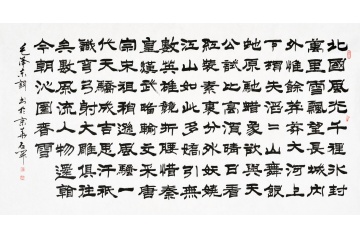 北國風光千里冰封
萬里雪飄望長城內
外惟餘莽莽大河上
下頓失滔滔山舞銀
蛇原馳蠟象欲與天
公試比高須晴日看
紅裝素裹分外妖嬈
江山如此多嬌引無
數英雄競折腰惜秦
皇漢武略輸文采唐
宗宋祖稍遜風騷一
代天驕成吉思汗祇
識彎弓射大雕俱往
矣數風流人物還看
今朝沁園春雪
毛澤東詞 於京華